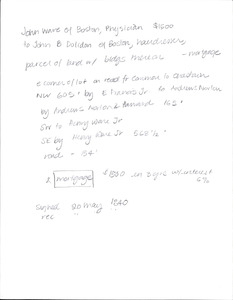 John Ware of Boston, Physician $1500
to John B Dalston of Boston,
parcel of land w/ bldgs thereon - mortgage
E corner of lot on road fr Cambridge to
NW 605' by E Francis Jr to Andrews
by Andrews 165'
SW to Henry Ware Jr
SE by Henry Ware Jr 560 ½'
road - 154'
& mortgage $1300 in 3 yrs w/ interest
6%
signed 20 May 1840
rec